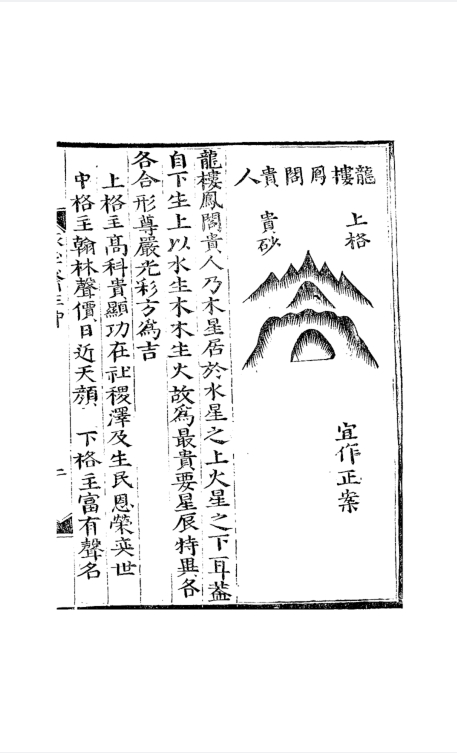 龍樓鳳閣貴人
上格
貴砂
宜作正案
龍樓鳳閣貴人乃木星居於水星之上火星之下耳葢
自下生上以水生木木生火故為最貴要星辰特異各
各合形尊嚴光彩方為吉
上格主高科貴顯功在社稷澤及生民恩榮奕世
中格主翰林聲價日近天顏　下格主富有聲名